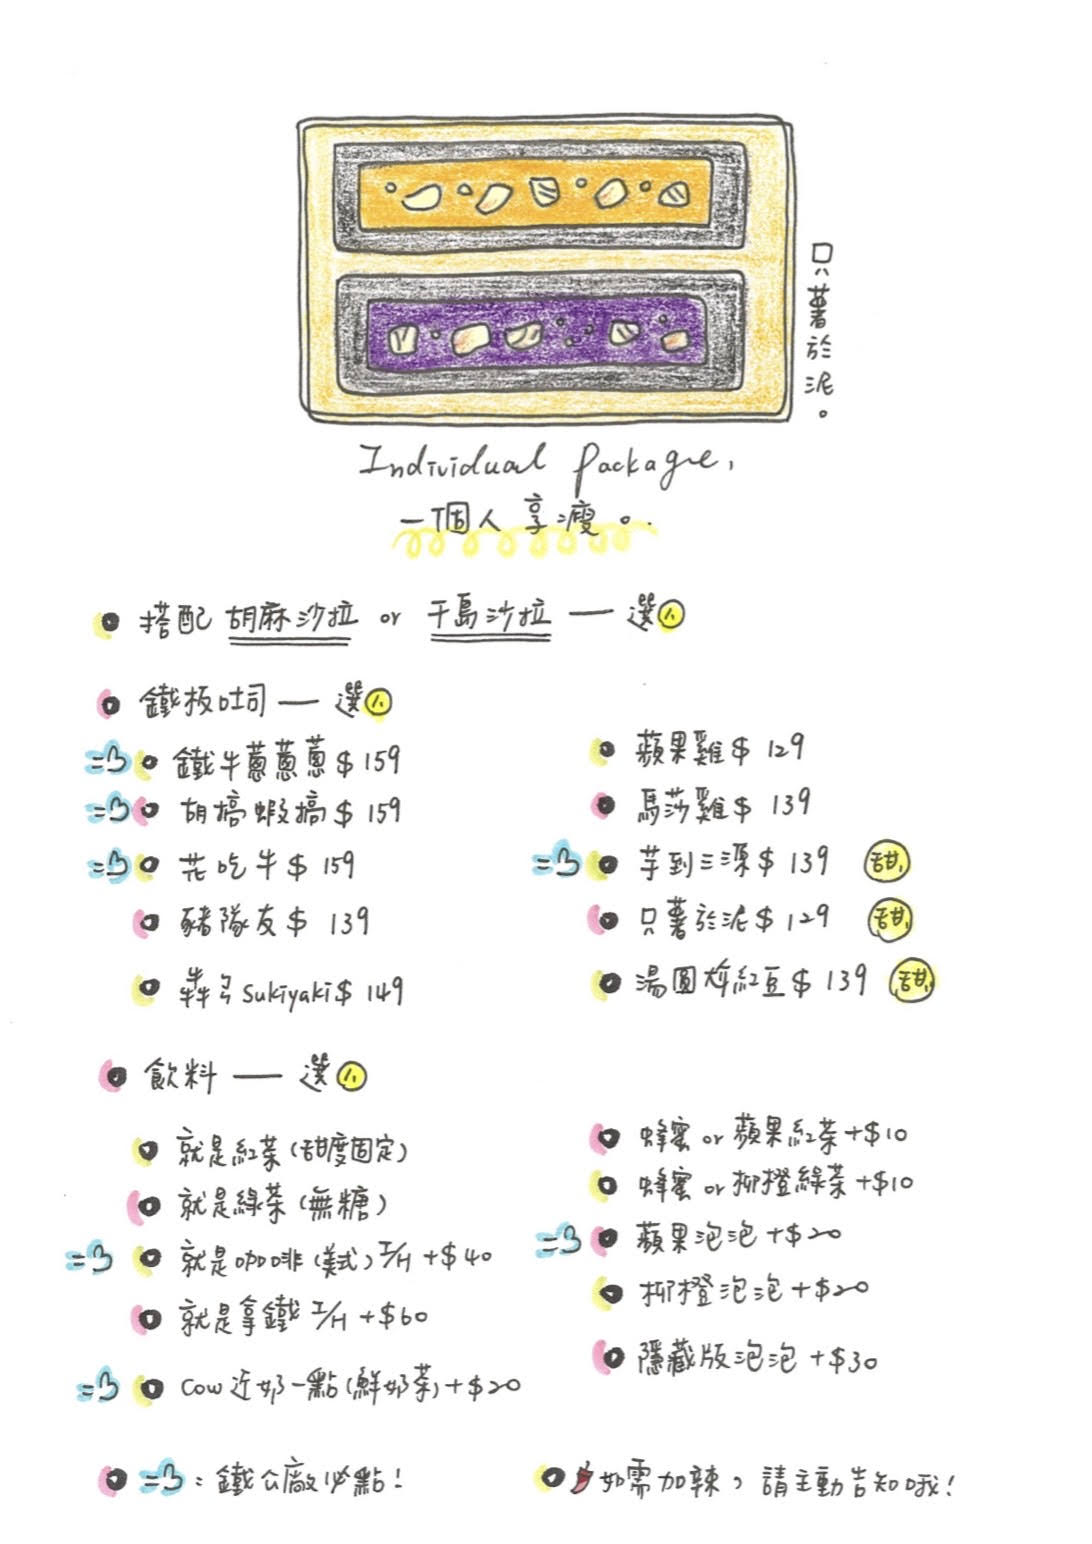 只薯於泥。
Individual Package,
一個人享瘦。
搭配 胡麻沙拉 or 千島沙拉 一 選
鐵板吐司 一 選
鐵牛蔥蔥蔥 $ 159
胡搞蝦搞 $ 159
花吃牛 $ 159
豬隊友 $ 139
犇弓 Sukiyaki $ 149
蘋果雞 $ 129
馬莎雞 $ 139
芋到三源 $ 139 甜
只薯於泥 $ 129 甜
湯圓煒紅豆 $ 139 甜
飲料 一 選
就是紅茶 (甜度固定)
就是綠茶 (無糖)
就是咖啡 (美式) I/H +$40
就是拿鐵 I/H +$60
Cow 近奶一點 (鮮奶茶) +$20
蜂蜜 or 蘋果紅茶 +$10
蜂蜜 or 柳橙綠茶 +$10
蘋果泡泡 +$20
柳橙泡泡 +$20
隱藏版泡泡 +$30
: 鐵公廠必點!
如需加辣, 請主動告知哦!